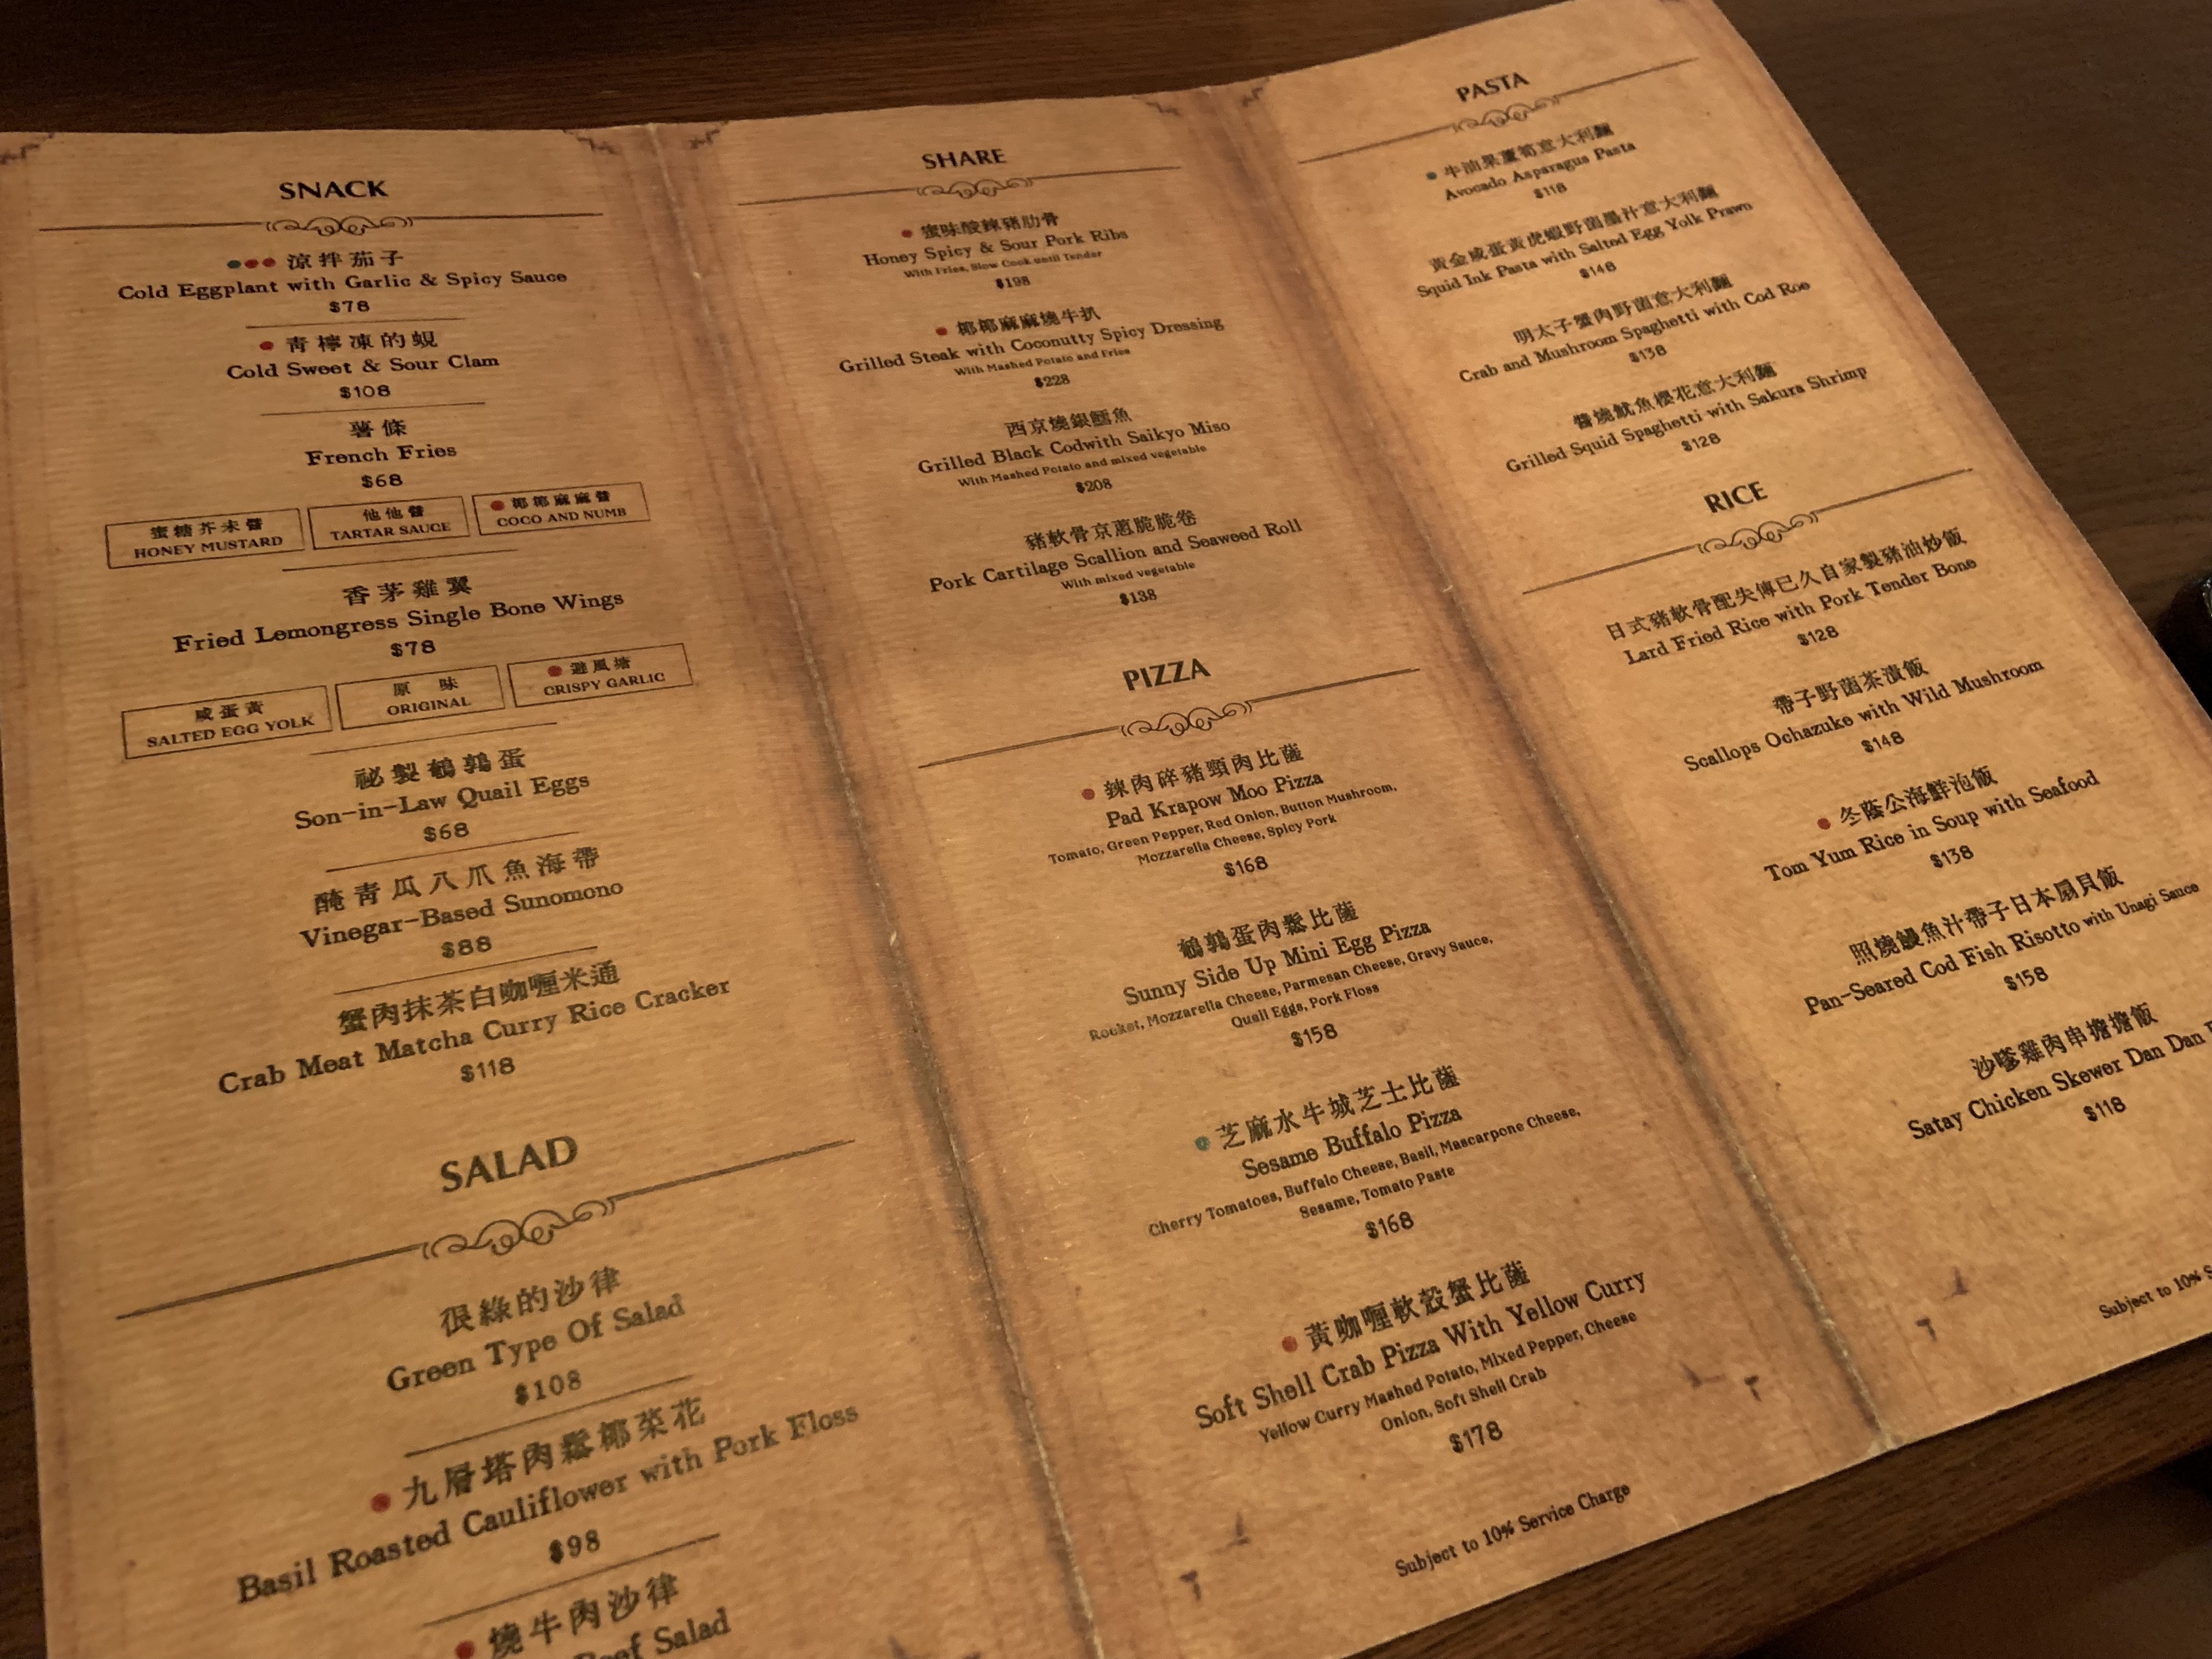 SNACK
涼拌茄子
Cold Eggplant with Garlic & Spicy Sauce
$78
青檸凍的蜆
Cold Sweet & Sour Clam
$108
薯條
French Fries
$68
蜜糖芥末醬
HONEY MUSTARD
他他醬
TARTAR SAUCE
椰椰麻麻醬
COCO AND NUMB
香茅雞翼
Fried Lemongress Single Bone Wings
$78
咸蛋黃
SALTED EGG YOLK
原味
ORIGINAL
避風塘
CRISPY GARLIC
祕製鵪鶉蛋
Son-in-Law Quail Eggs
$68
醃青瓜八爪魚海帶
Vinegar-Based Sunomono
$88
蟹肉抹茶白咖喱米通
Crab Meat Matcha Curry Rice Cracker
$118
SALAD
很綠的沙律
Green Type Of Salad
$108
九層塔肉鬆椰菜花
Basil Roasted Cauliflower with Pork Floss
$98
燒牛肉沙律
Beef Salad
SHARE
蜜味酸辣豬肋骨
Honey Spicy & Sour Pork Ribs
With Fries, Slow Cook until Tender
$198
椰椰麻麻燒牛扒
Grilled Steak with Coconutty Spicy Dressing
With Mashed Potato and Fries
$228
西京燒銀鱈魚
Grilled Black Codwith Saikyo Miso
With Mashed Potato and mixed vegetable
$208
豬軟骨京蔥脆脆卷
Pork Cartilage Scallion and Seaweed Roll
With mixed vegetable
$138
PIZZA
辣肉碎豬頸肉比薩
Pad Krapow Moo Pizza
Tomato, Green Pepper, Red Onion, Button Mushroom,
Mozzarella Cheese, Spicy Pork
$168
鵪鶉蛋肉鬆比薩
Sunny Side Up Mini Egg Pizza
Rocket, Mozzarella Cheese, Parmesan Cheese, Gravy Sauce,
Quail Eggs, Pork Floss
$158
芝麻水牛城芝士比薩
Sesame Buffalo Pizza
Cherry Tomatoes, Buffalo Cheese, Basil, Mascarpone Cheese,
Sesame, Tomato Paste
$168
黃咖喱軟殼蟹比薩
Soft Shell Crab Pizza With Yellow Curry
Yellow Curry Mashed Potato, Mixed Pepper, Cheese
Onion, Soft Shell Crab
$178
Subject to 10% Service Charge
PASTA
牛油果蘆筍意大利麵
Avocado Asparagus Pasta
$118
黃金咸蛋黃虎蝦野菌墨汁意大利麵
Squid Ink Pasta with Salted Egg Yolk Prawn
$148
明太子蟹肉野菌意大利麵
Crab and Mushroom Spaghetti with Cod Roe
$138
醬燒魷魚櫻花意大利麵
Grilled Squid Spaghetti with Sakura Shrimp
$128
RICE
日式豬軟骨配失傳已久自家製豬油炒飯
Lard Fried Rice with Pork Tender Bone
$128
帶子野菌茶漬飯
Scallops Ochazuke with Wild Mushroom
$148
冬蔭公海鮮泡飯
Tom Yum Rice in Soup with Seafood
$138
照燒鰻魚汁帶子日本扇貝飯
Pan-Seared Cod Fish Risotto with Unagi Sauce
$158
沙嗲雞肉串擔擔飯
Satay Chicken Skewer Dan Dan
$118
Subject to 10%